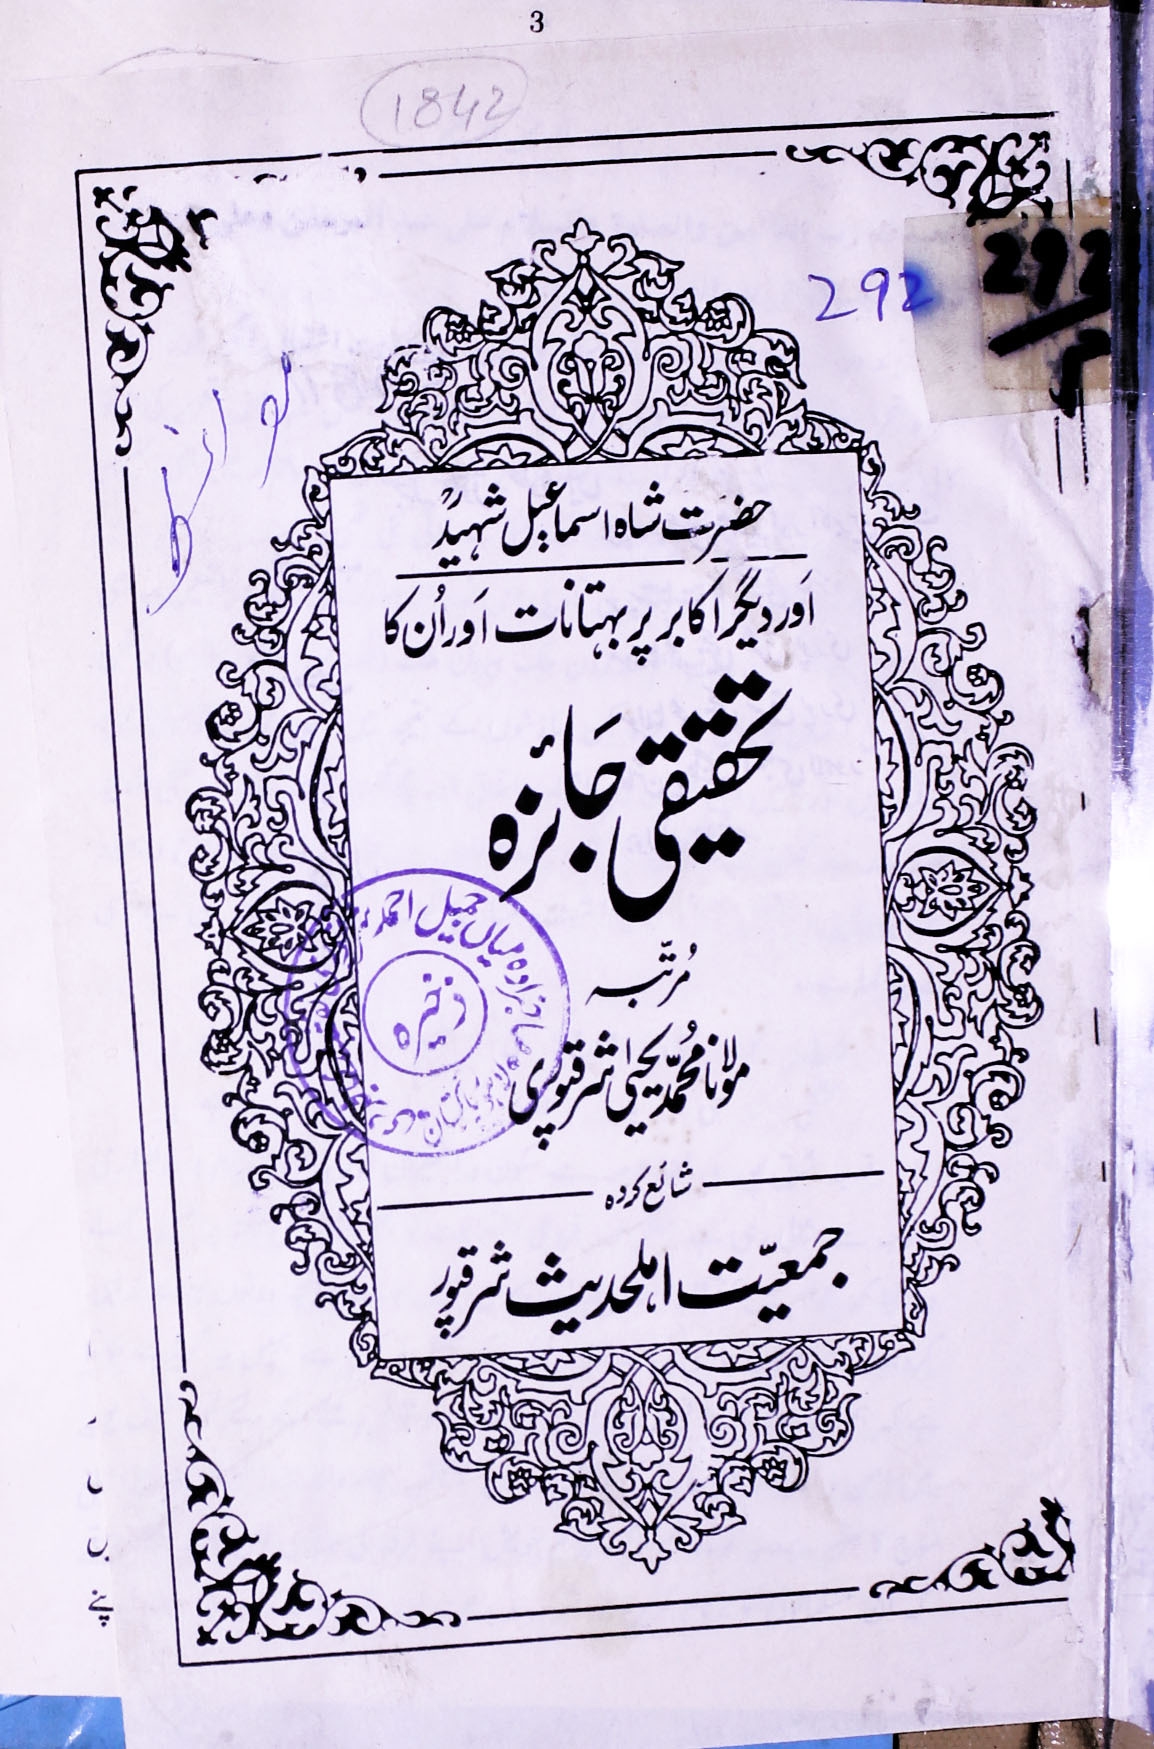 3
1842
292
292
حضرت شاہ اسماعیل شہیدؒ
اور دیگر اکابر پر بہتانات اور اُن کا
تحقیقی جائزہ
مُرتّبہ
مولانا محمّد یحییٰ شرقپوری
شائع کردہ
جمعیّت اہلحدیث شرقپور
صاحبزادہ میاں جمیل احمد
ذخیرہ